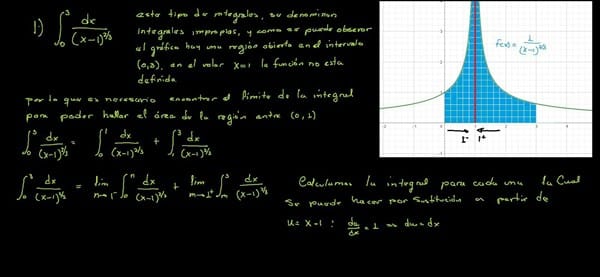 1) ∫₀³ dx/(x-1)^{2/3} este tipo de integrales, se denominan
integrales impropias, y como se puede observar
al gráfica hay una región abierta en el intervalo
(0,3), en el valor x=1 la función no esta
definida
por lo que es necesario encontrar el limite de la integral
para poder hallar el área de la región entre (0,1)
∫₀³ dx/(x-1)^{2/3} = ∫₀¹ dx/(x-1)^{2/3} + ∫₁³ dx/(x-1)^{2/3}
∫₀³ dx/(x-1)^{2/3} = lim n→1⁻ ∫₀ⁿ dx/(x-1)^{2/3} + lim m→1⁺ ∫ₘ³ dx/(x-1)^{2/3}
Calculamos la integral para cada una la cual
se puede hacer por sustitución a partir de
u = x-1 : du/dx = 1 ⇒ du = dx
f(x) = 1/(x-1)^{2/3}
-2 0 2 4
1⁻ 1⁺